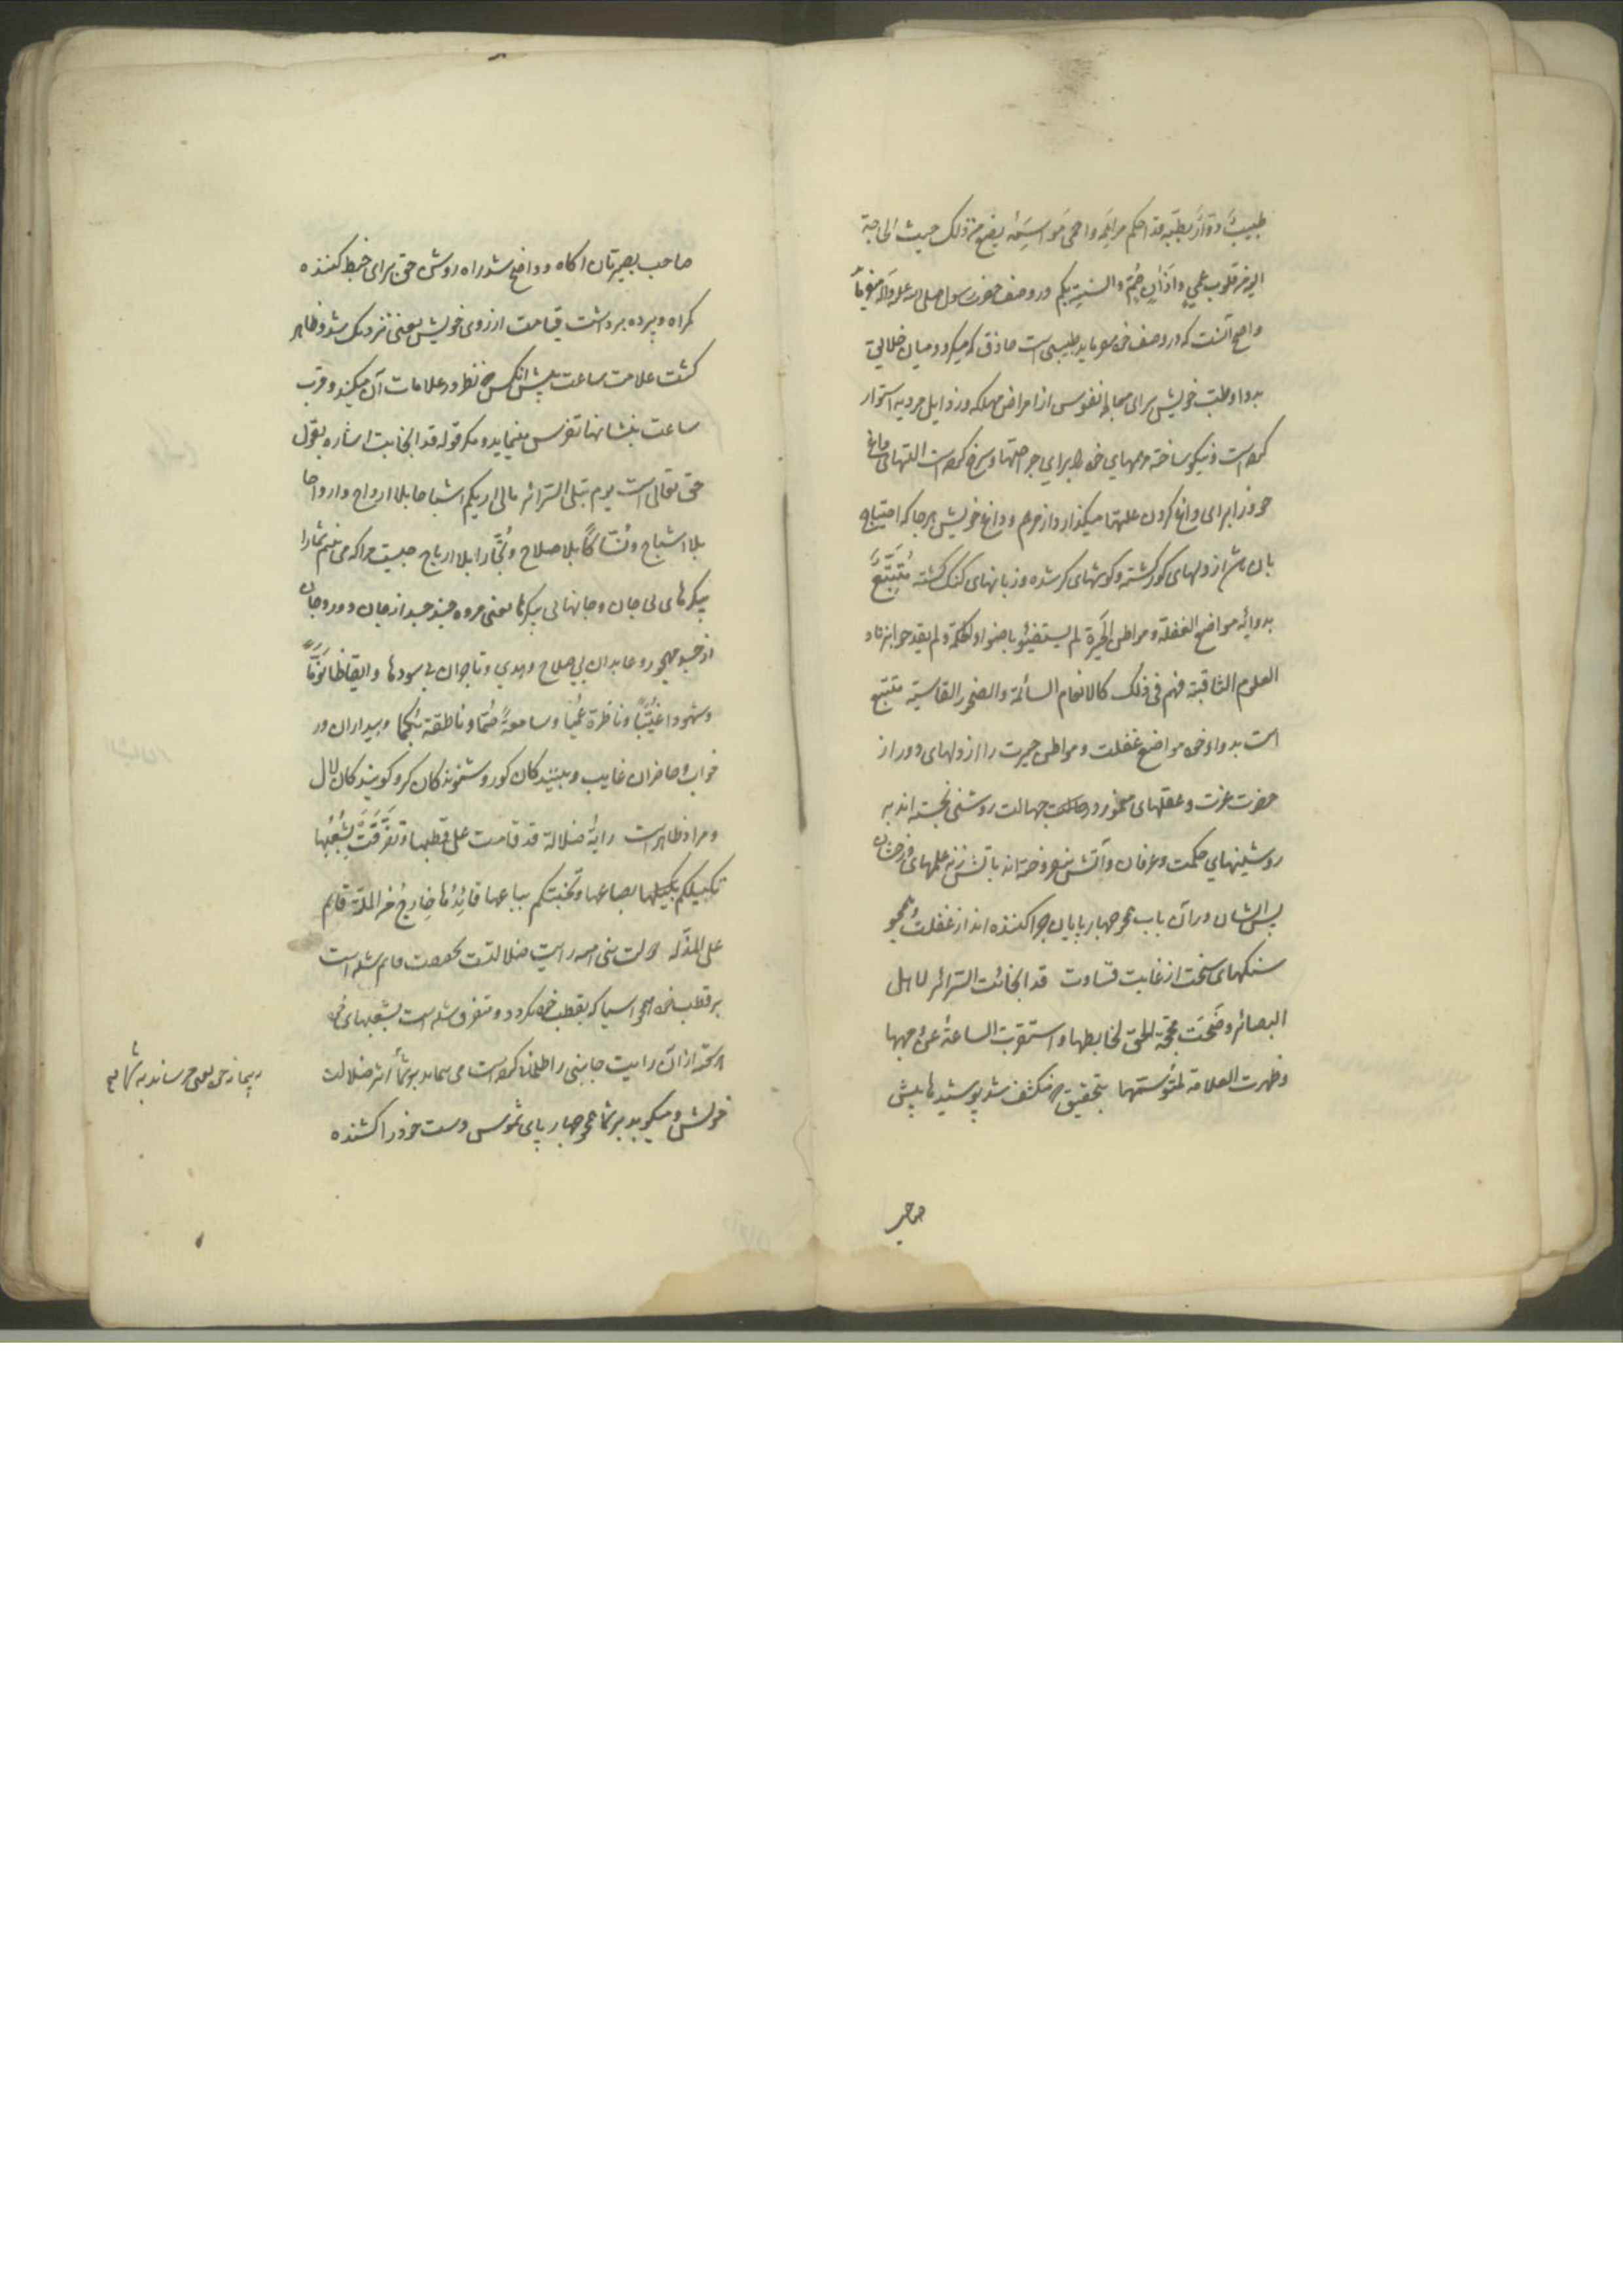 طبیبٌ دوّارٌ بطبّه قد احکم مراهمه و احمی مواسمه یضع من ذلک حیث الحاجة
الیه من قلوب عمی و آذان صمّ و السنة بکم در وصف حضرت رسول صلی الله علیه و آله میفرماید
و اصح آنست که در وصف خود میفرماید طبیبی است حاذق که میگردد میان خلایق
بدوا و طبّ خویش برای معالجه نفوس از امراض مهلکه و رذایل مردیه استوار
کرده است و نیکو ساخته مرهمهای خود را برای جراحتها و سرخ کرده است التهای داغ
خود را برای داغ کردن علتها میگذارد از مرهم و داغ خویش هرجا که احتیاج
بان باشد از دلهای کور گشته و گوشهای کر شده و زبانهای گنگ گشته مُتَتَبِّعٌ
بدوائه مواضع الغفلة و مواطن الحیرة لم یستضیئوا باضواء الحکمة و لم یقدحوا بزناد
العلوم الثاقبة فهم فی ذلک کالانعام السائمة و الصخور القاسیة متتبع
است بدواء خود مواضع غفلت و مواطن حیرت را از دلهای دور از
حضرت عزت و عقلهای مخمور در جهالت روشنی نجسته اند به
روشنیهای حکمت و عرفان و آتش نیفروخته اند باتش زنه علمهای درخشان
پس ایشان در آن باب همچو چهارپایان چرا کننده اند از غفلت و همچو
سنکهای سخت از غایت قساوت قد انجابت السرائر لاهل
البصائر و وضحت محجة الحق لخابطها و اسفرت الساعة عن وجهها
و ظهرت العلامة لمتوسمها بتحقیق که منکشف شد پوشیدها پیش
صاحب
صاحب بصیرتان اکاه و واضح شد راه روش حق برای خبط کننده
کمراه و پرده برداشت قیامت از روی خویش یعنی نزدیک شد و ظاهر
کشت علامت ساعت پیش انکس که نظر در علامات آن میکند و قرب
ساعت بنشانها تفرس مینماید و مکر قوله قد انجابت اشاره بقول
حق تعالی است یوم تبلی السرائر مالی اریکم اشباحا بلا ارواح و ارواحا
بلا اشباح و نُسّاکاً بلا صلاح و تُجّارا بلا ارباح چیست مرا که می بینم شما را
پیکرهای بی جان و جانهای بی پیکرها یعنی مرده چند جسد از جان دور و جان
از جسد مهجور و عابدان بی صلاح و مهدی و تاجران بی سودها و ایقاظا نُوَّماً
و شهودا غیّباً و ناظرة عمیا و سامعةً صمّا و ناطقة بکما و بیداران در
خواب و حاضران غایب و بینندکان کور و شنوندکان کر و کویندکان لال
و مراد ظاهر است رایةُ ضلالة قد قامت علی قطبها و تفرّقت بشُعَبِها
تکیلکم بکیلها بصاعها و تخبتکم بباعها قائدُها خارجٌ من الملّة قائم
علی المذلّة دولت بنی امیه رایت ضلالتست بتحقیق قایم شده است
بر قطب خود همچو اسیا که بقطب خود کردد و متفرق شده است بشعبهای خود
از آن رایت جانبی را ضلالت
خویش و میکوبد بر شما همچو چهارپای شموس دست خود را کشنده